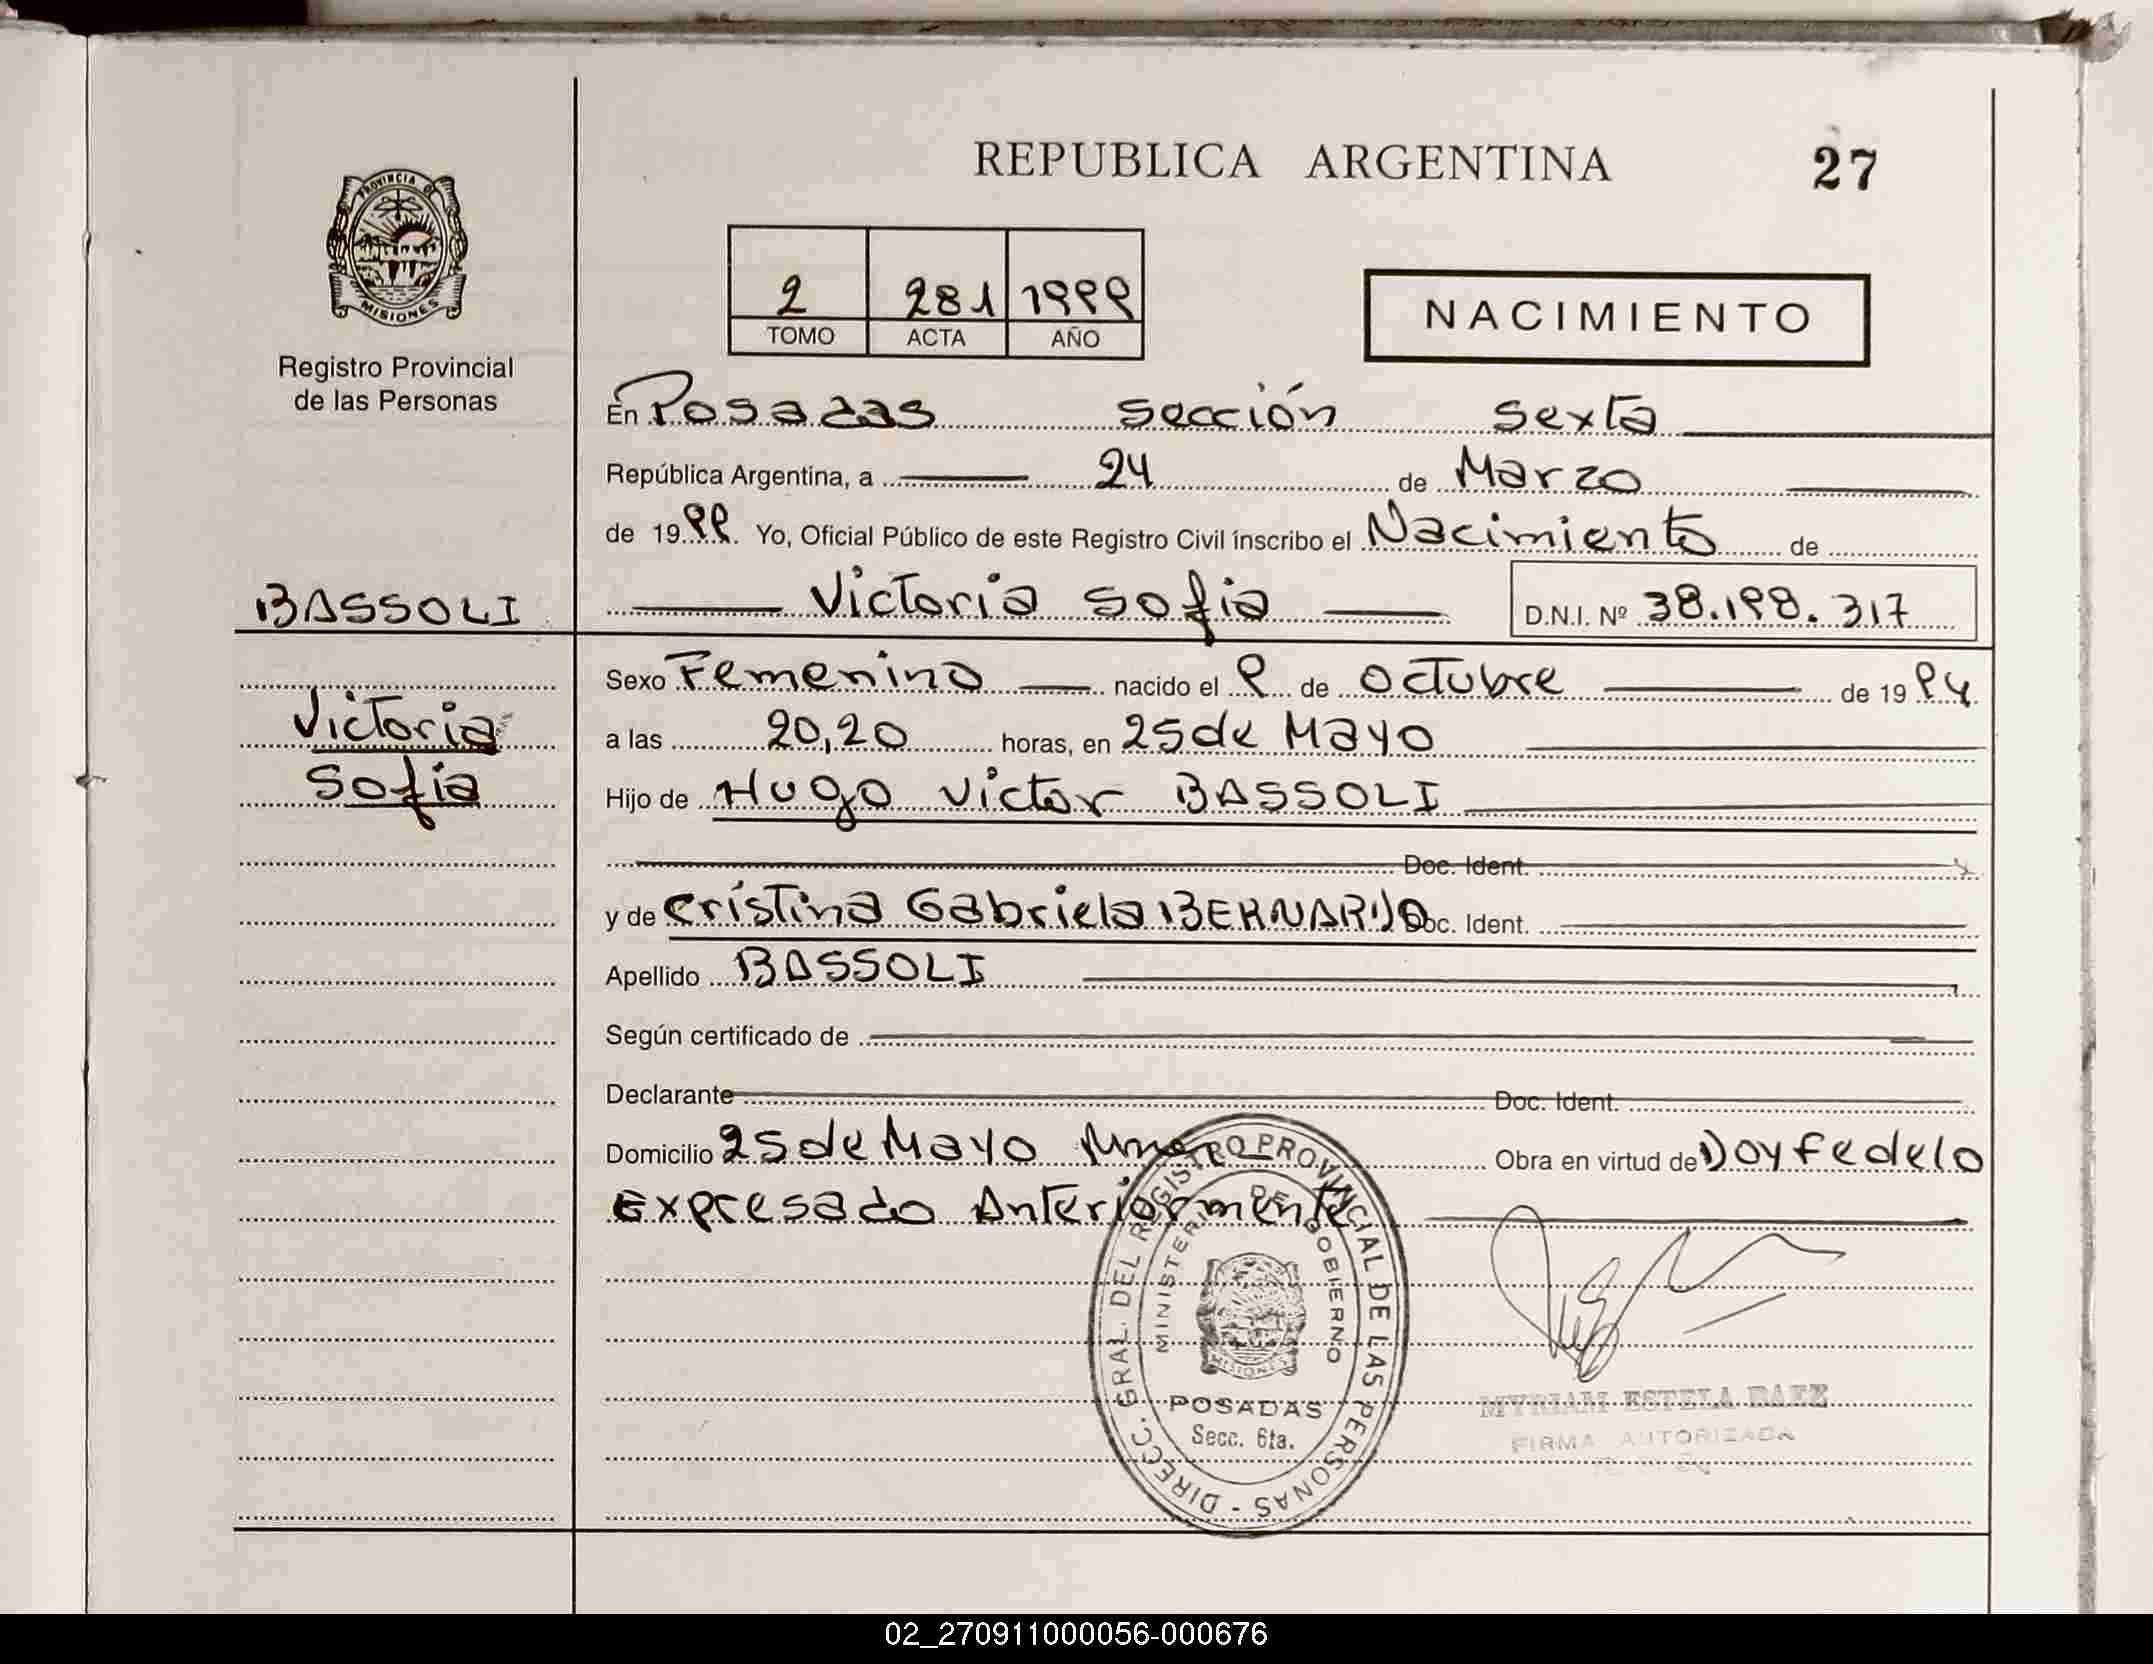 REPUBLICA ARGENTINA 27
PROVINCIA DE
MISIONES
Registro Provincial
de las Personas
2 281 1999
TOMO ACTA AÑO
NACIMIENTO
En Posadas sección sexta
República Argentina, a 24 de Marzo
de 1999. Yo, Oficial Público de este Registro Civil inscribo el Nacimiento de
BASSOLI
Victoria Sofia D.N.I. Nº 38.198.317
Sexo Femenino nacido el 9 de Octubre de 1994
Victoria
a las 20,20 horas, en 25 de Mayo
Sofia
Hijo de Hugo Victor BASSOLI
Doc. Ident.
y de Cristina Gabriela Doc. Ident.
Apellido BASSOLI
Según certificado de
Declarante Doc. Ident.
Domicilio 25 de Mayo Mnes Obra en virtud de Doy fe de lo
Expresado Anteriormente
DIRECC. GRAL. DEL REGISTRO PROVINCIAL DE LAS PERSONAS -
MINISTERIO DE GOBIERNO
MISIONES
POSADAS
Secc. 6ta.
MYRIAM ESTELA BAEZ
FIRMA AUTORIZADA
02_270911000056-000676